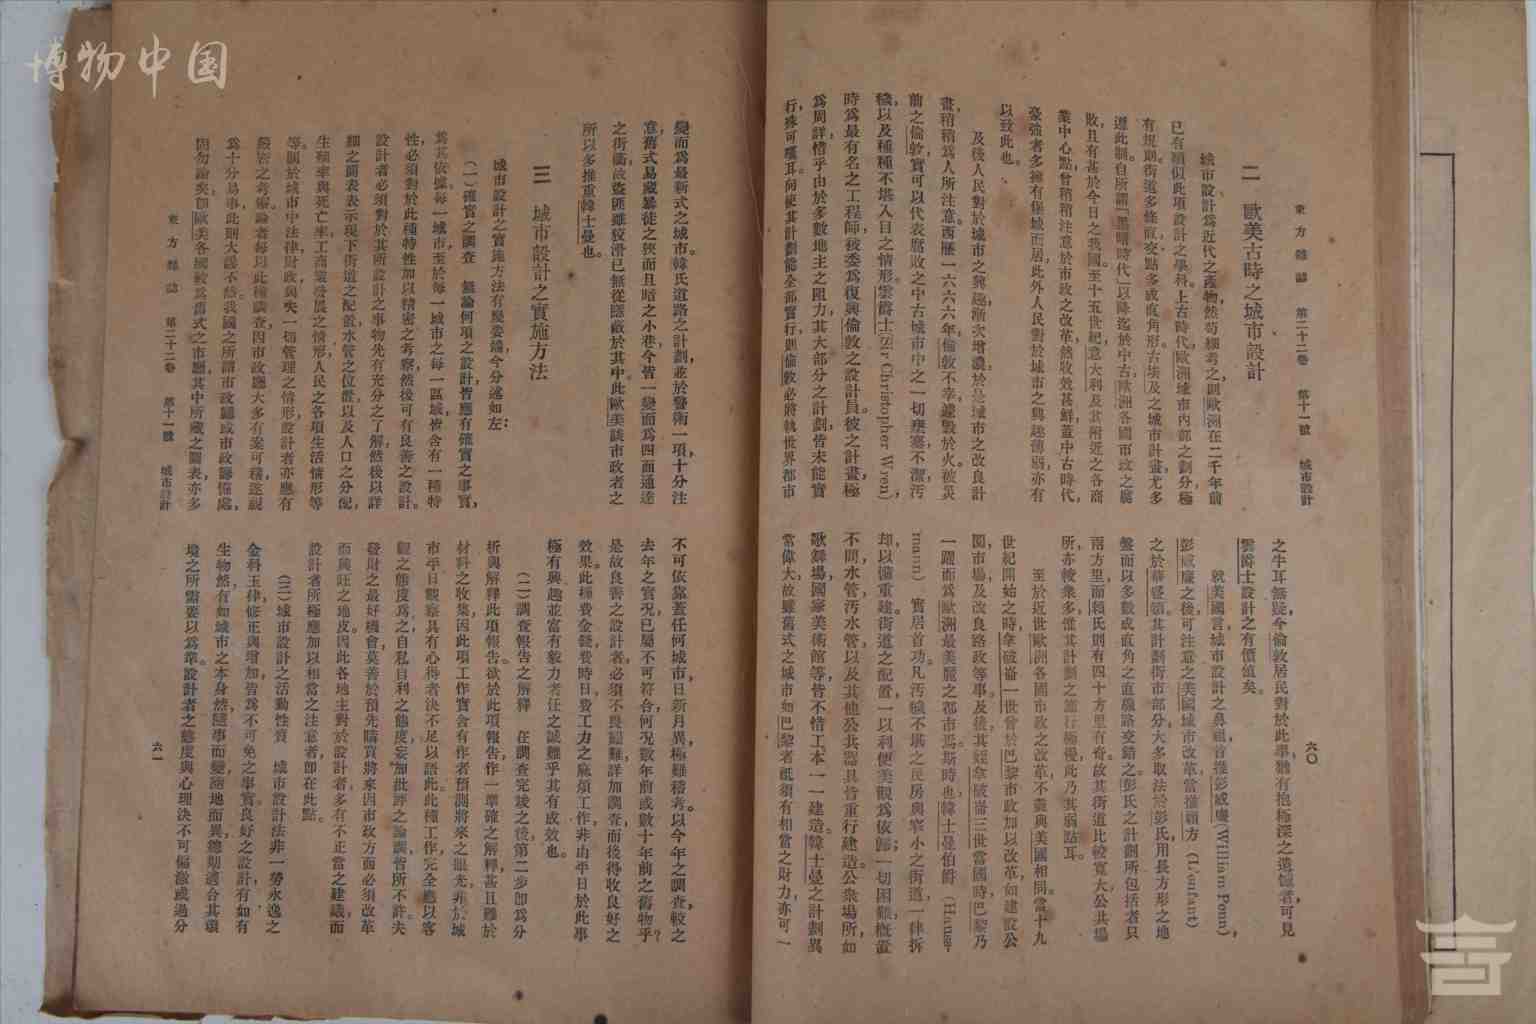 博物中国
東方雜誌 第二十二卷 第十一號 城市設計
六〇
二 歐美古時之城市設計
城市設計爲近代之產物然苟細考之則歐洲在二千年前
已有類似此項設計之學科上古時代歐洲城市內部之劃分極
有規則街道多條直交點多成直角形古埃及之城市計畫尤多
遵此制。自所謂「黑暗時代」以降迄於中古歐洲各國市政之腐
敗且有甚於今日之我國。至十五世紀意大利及其附近之各商
業中心點曾稍稍注意於市政之改革然收效甚鮮蓋中古時代,
豪強者多擁有堡城而居,此外人民對於城市之興趣薄弱亦有
以致此也。
及後人民對於城市之興趣漸次增濃,於是城市之改良計
畫稍稍爲人所注意。西歷一六六六年,倫敦不幸,鑪燬於火,被災
前之倫敦,實可以代表腐敗之中古城市,市中之一切壅塞不潔,汚
穢以及種種不堪入目之情形。雲爵士(Zir Christopher Wren),
時爲最有名之工程師,被委爲復興倫敦之設計員。彼之計畫極
爲周詳,惜乎由於多數地主之阻力,其大部分之計劃,皆未能實
行,殊可嘆耳。向使其計劃能全部實行,則倫敦必將執世界都市
之牛耳無疑。今倫敦居民對於此舉,猶有抱極深之遺憾者,可見
雲爵士設計之有價值矣。
就美國言,城市設計之鼻祖首推彭威廉(William Penn),
彭威廉之後,可注意之美國城市改革,當推穎方(L'enfant)
之於華盛頓。其計劃街市部分,大多取法於彭氏,用長方形之地
盤而以多數成直角之直線路交錯之。彭氏之計劃所包括者只
兩方里,而穎氏則有四十方里有奇。故其街道比較寬大,公共場
所亦較衆多,惟其計劃之施行極慢,此乃其弱點耳。
至於近世歐洲各國市政之改革,不盡與美國相同。當十九
世紀開始之時,拿破崙一世曾於巴黎市政加以改革,如建設公
園市場及改良路政等事。及後,其姪拿破崙三世當國時,巴黎乃
一躍而爲歐洲最美麗之都市焉。斯時也,韓士曼伯爵(Hauss-
mann)實居首功。凡汚穢不堪之民房與窄小之街道,一律拆
却,以備重建。街道之配置,一以利便美觀爲依歸,一切困難,槪置
不問,水管,汚水管,以及其他公共器具,皆重行建造。公衆場所如
歌舞場,國家美術館等,皆不惜工本,一一建造。韓士曼之計劃異
常偉大,故雖舊式之城市,如巴黎者,祇須有相當之財力,亦可一
變而爲最新式之城市。韓氏道路之計劃,並於警衛一項,十分注
意。舊式易藏暴徒之狹而且暗之小巷,今皆一變而爲四面通達
之街衢,故盜匪雖狡滑,已無從隱蔽於其中。此歐美談市政者之
所以多推重韓士曼也。
三 城市設計之實施方法
城市設計之實施方法有幾要端,今分述如左:
(一)確實之調查 無論何項之設計,皆應有確實之事實,
爲其依據。每一城市,至於每一城市之每一區域,皆含有一種特
性,必須對於此種特性,加以精密之考察,然後可有良善之設計。
設計者必須對於其所設計之事物,先有充分之了解,然後以詳
細之圖表,表示現下街道之配置,水管之位置,以及人口之分配,
生產率與死亡率,工商業發展之情形,人民之各項生活情形等
等。關於城市中法律,財政,與夫一切管理之情形,設計者亦應有
嚴密之考察。論者每以此種調查,因市政廳大多有案可稽,遂視
爲十分易事,此則大謬不然。我國之所謂市政廳或市政籌備處,
固勿論矣,卽歐美各國較爲舊式之市廳,其中所藏之圖表,亦多
不可依靠。蓋任何城市,日新月異,極難稽考。以今年之調查,較之
去年之實況,已屬不可符合,何況數年前或數十年前之舊物乎?
是故良善之設計者,必須不畏艱難,詳加調查,而後得收良好之
效果。此種費金錢,費時日,費工力之麻煩工作,非由平日於此事
極有興趣並富有毅力者任之,誠難乎其有成效也。
(二)調查報告之解釋 在調查完竣之後,第二步卽爲分
析與解釋此項報告。欲於此項報告,作一準確之解釋,甚且難於
材料之收集。因此項工作,實含有作者預測將來之眼光,非於城
市平日觀察具有心得者,決不足以語此。此種工作,完全應以客
觀之態度爲之,自私自利之態度,妄加批評之論調,皆所不許。夫
發財之最好機會,莫善於預先購買將來因市政方面必須改革
而興旺之地皮。因此各地主對於設計者,多有不正當之建議,而
設計者所極應加以相當之注意者,卽在此點。
(三)城市設計之活動性質 城市設計法非一勞永逸之
金科玉律,修正與增加,皆爲不可免之事實。良好之設計,有如有
生物然,有如城市之本身然,隨事而變,隨地而異,總期適合其環
境之所需要以爲準。設計者之態度與心理,決不可偏激或過分
東方雜誌 第二十二卷 第十一號 城市設計
六一